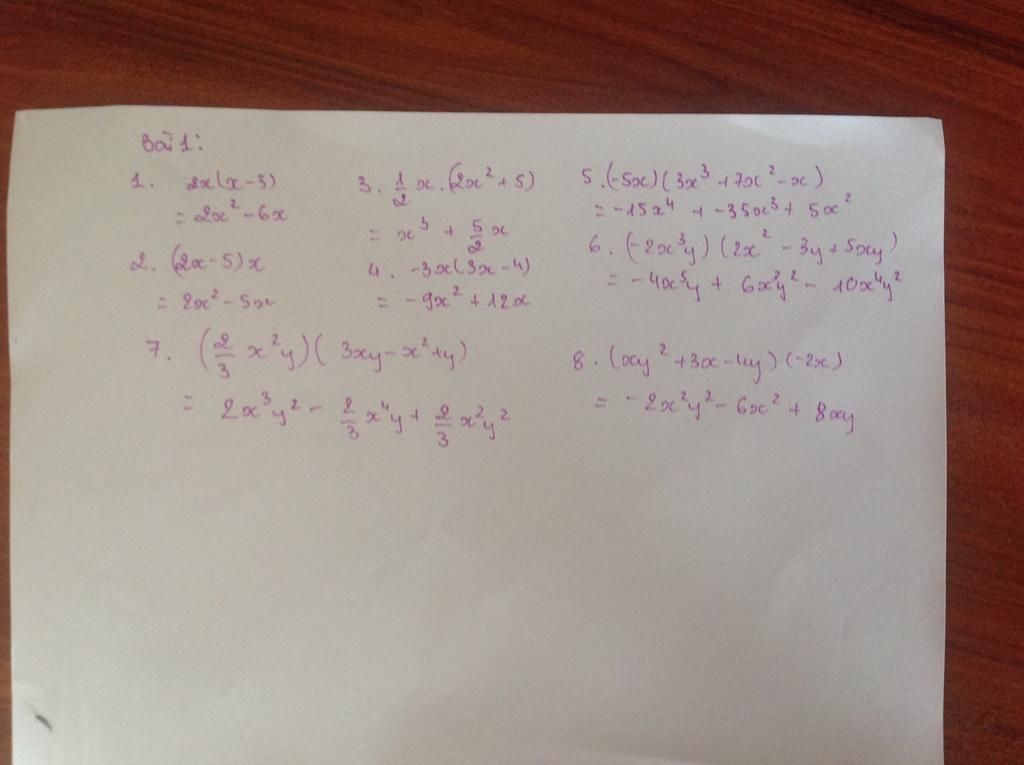 Bài 1:
1. 2x(x-3)
= 2x² - 6x
2. (2x-5)x
= 2x² - 5x
3. 1/2 x.(2x²+5)
= x³ + 5/2 x
4. -3x(3x-4)
= -9x² + 12x
5. (-5x)(3x³+7x²-x)
= -15x⁴ + -35x³ + 5x²
6. (-2x³y)(2x² - 3y + 5xy)
= -4x⁵y + 6x³y² - 10x⁴y²
7. (2/3 x²y)(3xy-x²+y)
= 2x³y² - 2/3 x⁴y + 2/3 x²y²
8. (xy²+3x-4y)(-2x)
= -2x²y² - 6x² + 8xy